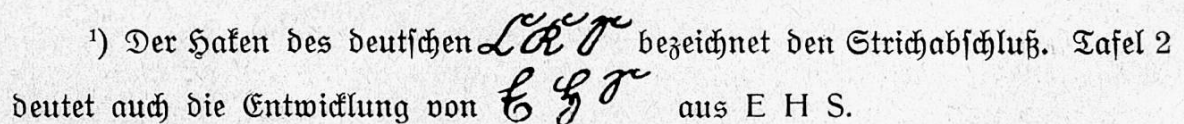 ¹) Der Haken des deutschen L K S bezeichnet den Strichabschluß. Tafel 2
deutet auch die Entwicklung von E H S aus E H S.